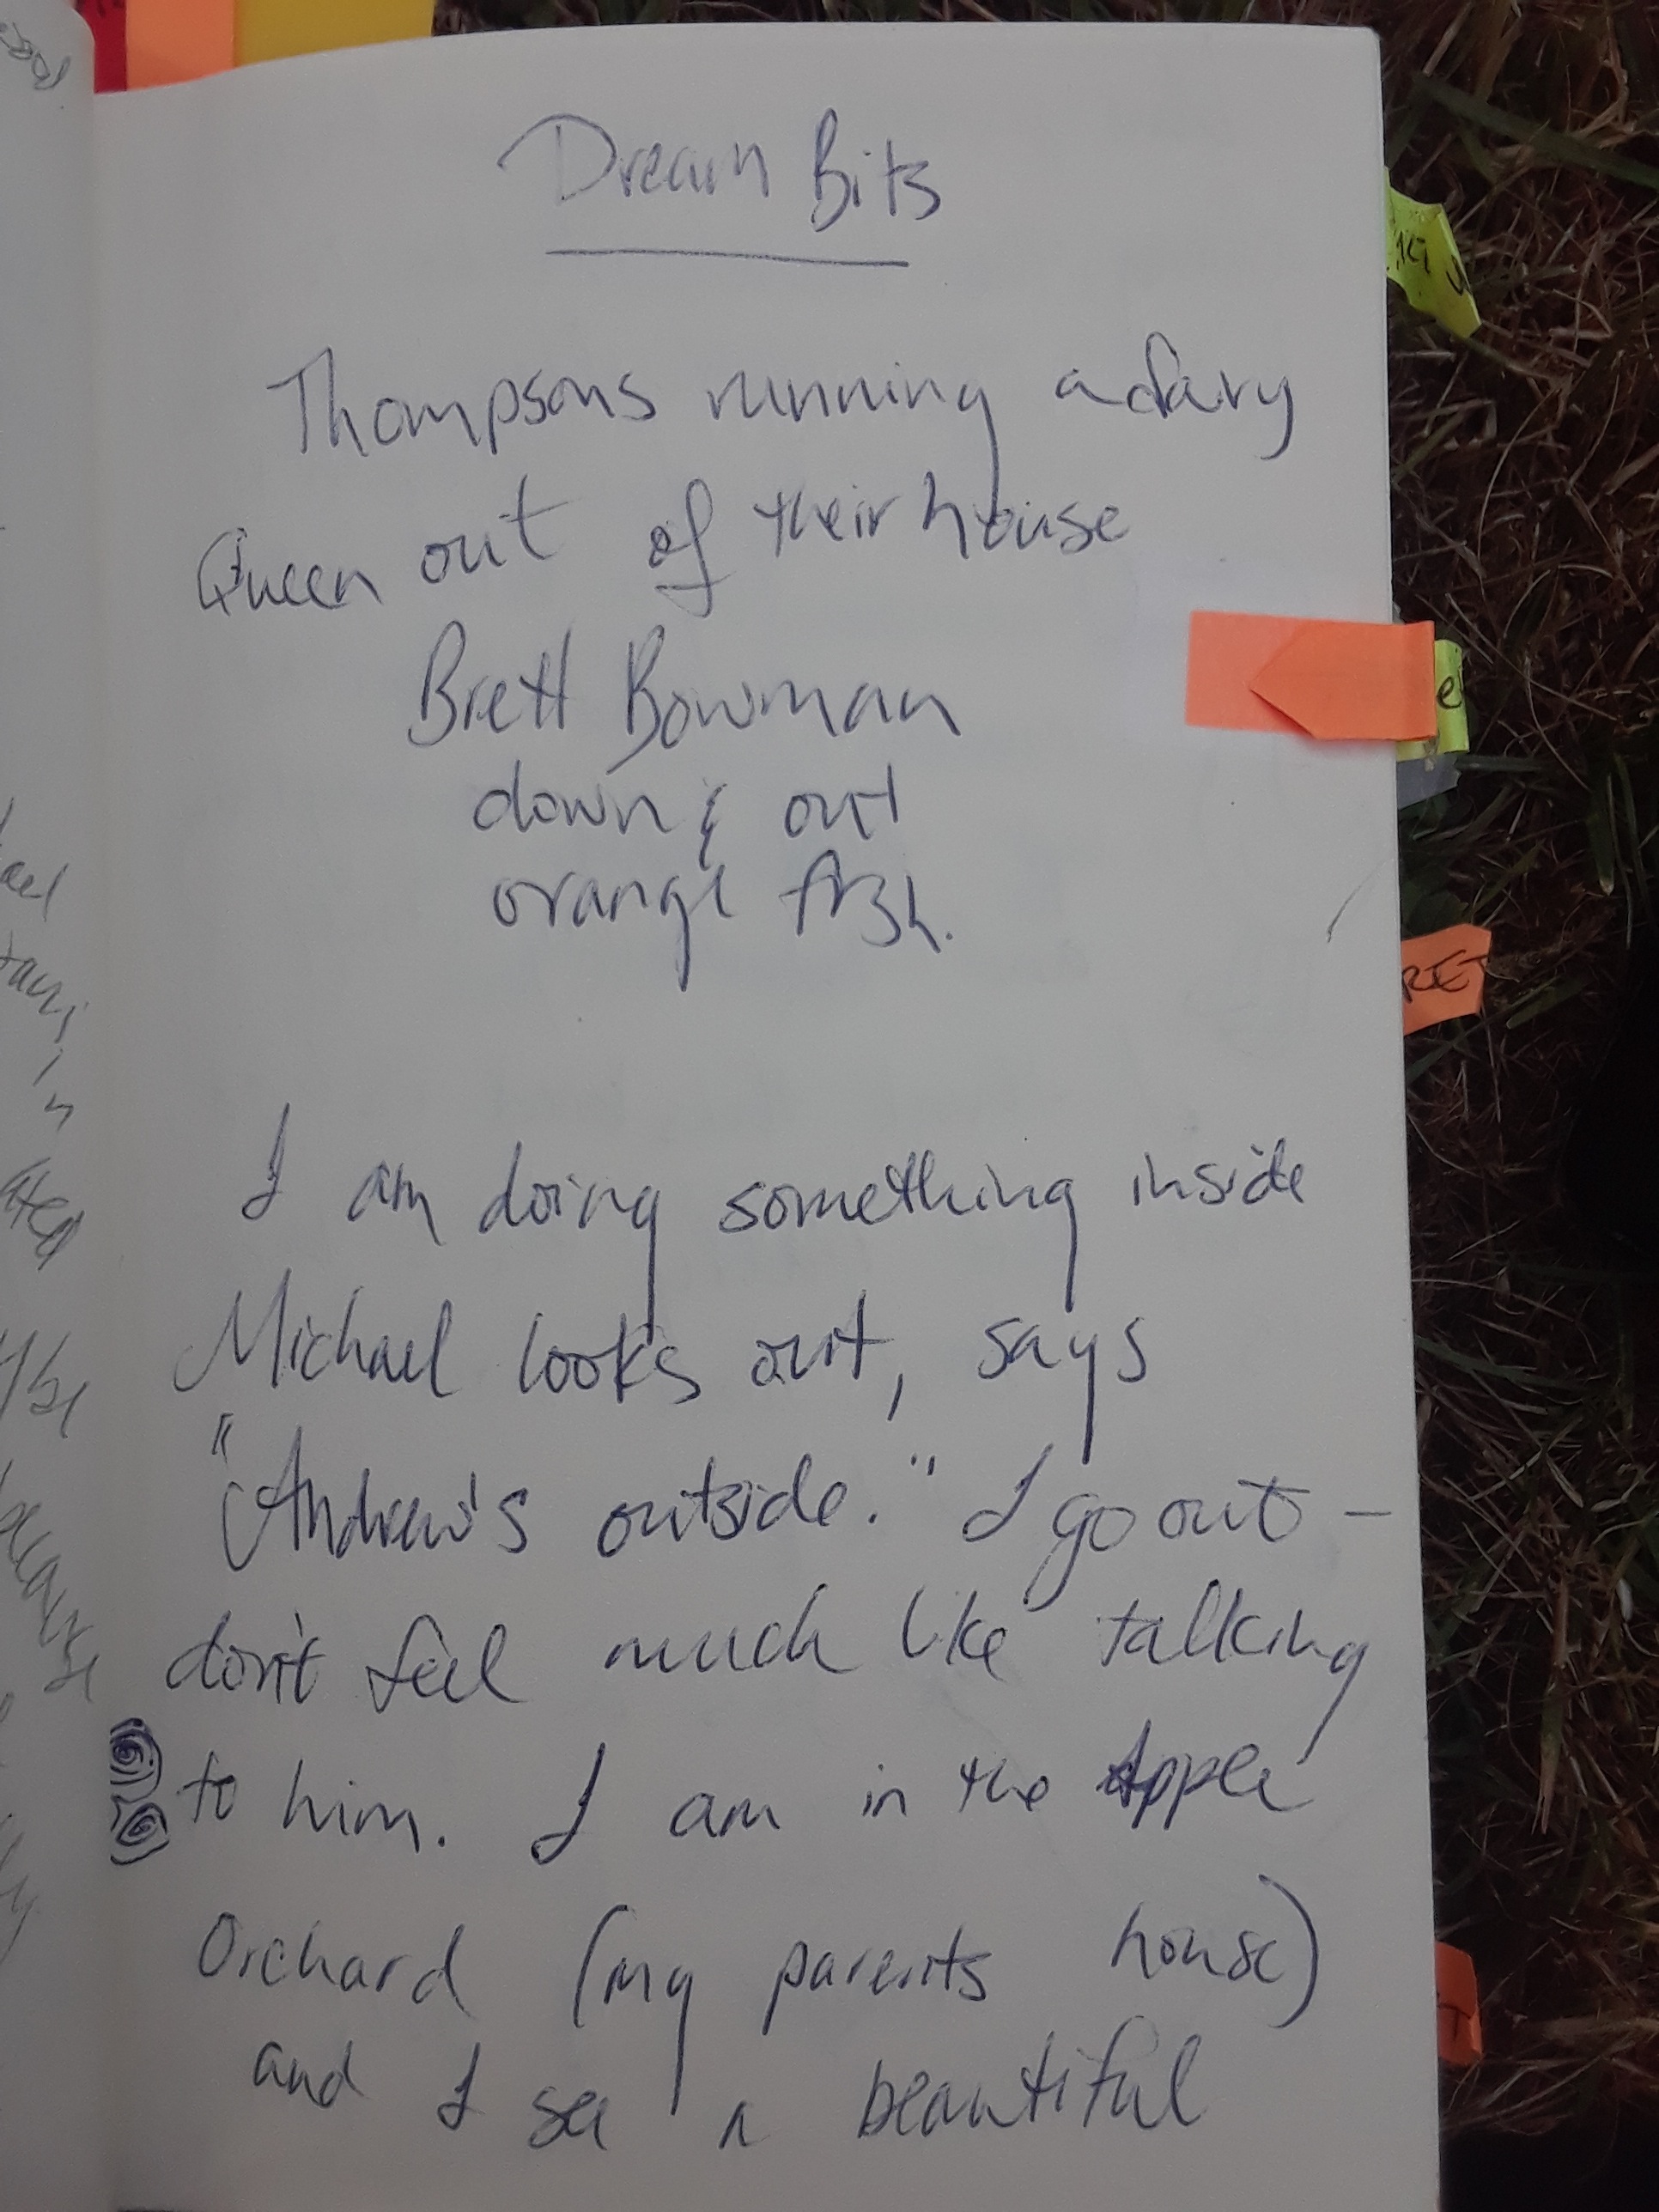 Dream Bits
Thompsons running a dairy
Queen out of their house
Brett Bowman
down & out
orange fish.
I am doing something inside
Michael looks out, says
"Andrew's outside." I go out –
don't feel much like talking
to him. I am in the Apple
Orchard (my parents house)
and I see a beautiful
RET